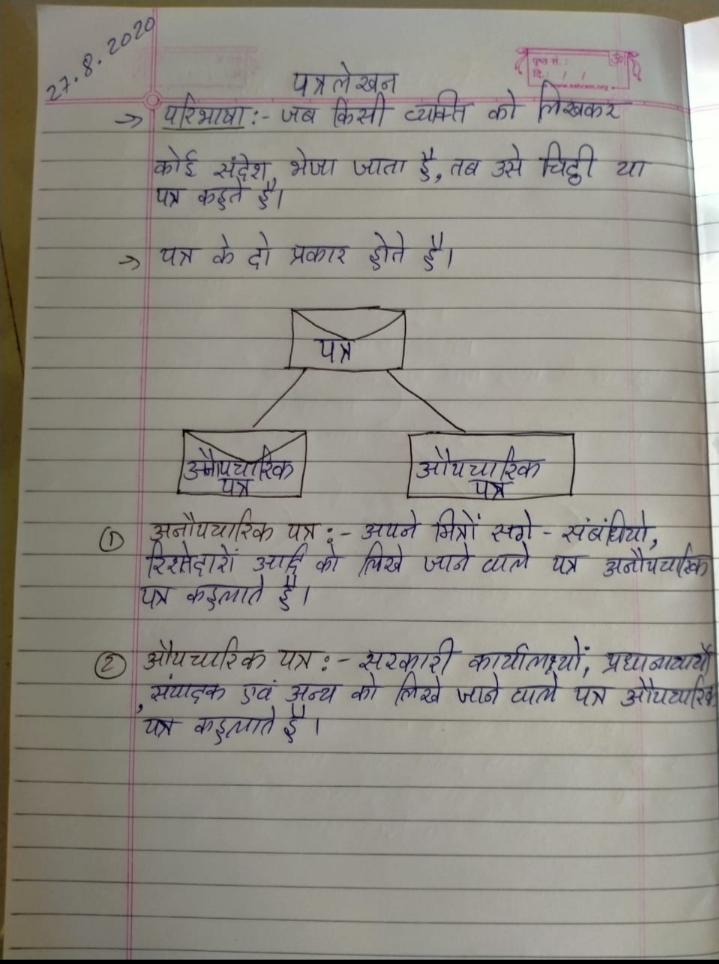 27.8.2020
पृष्ठ सं.:
दि.: / /
पत्रलेखन
→ परिभाषा:- जब किसी व्यक्ति को लिखकर
कोई संदेश, भेजा जाता है, तब उसे चिट्ठी या
पत्र कहते है।
→ पत्र के दो प्रकार होते है।
पत्र
अनौपचारिक औपचारिक
पत्र पत्र
① अनौपचारिक पत्र:- अपने मित्रों सगे - संबंधियो,
रिश्तेदारों आदि को लिखे जाने वाले पत्र अनौपचारिक
पत्र कहलाते है।
② औपचारिक पत्र:- सरकारी कार्यालयों, प्रधानाचार्यो
,संपादक एवं अन्य को लिखे जाने वाले पत्र औपचारिक
पत्र कहलाते है।